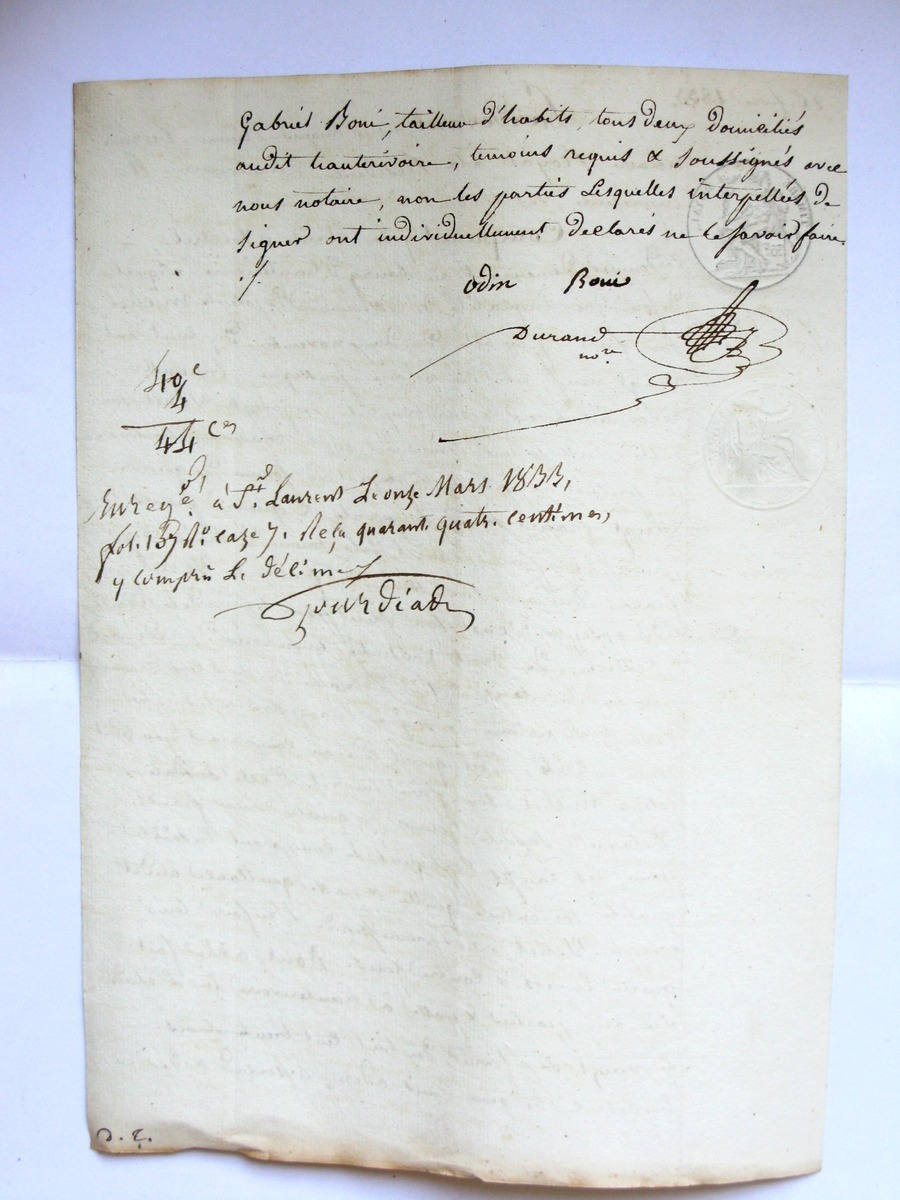 Gabriel Boni, tailleur d'habits, tous deux domiciliés
audit hauterivoire, temoins requis & soussignés avec
nous notaire, non les parties Lesquelles interpellées de
signer ont individuellement declarés ne le savoir faire
./.
odin Boni
Durand
nore
40 c
4
44 ces
Enregé. à St. Laurent Le onze Mars 1833,
fol. 137 Ro. caze 7. Reçu quarante quatre centimes,
y compris Le décime
D. E.